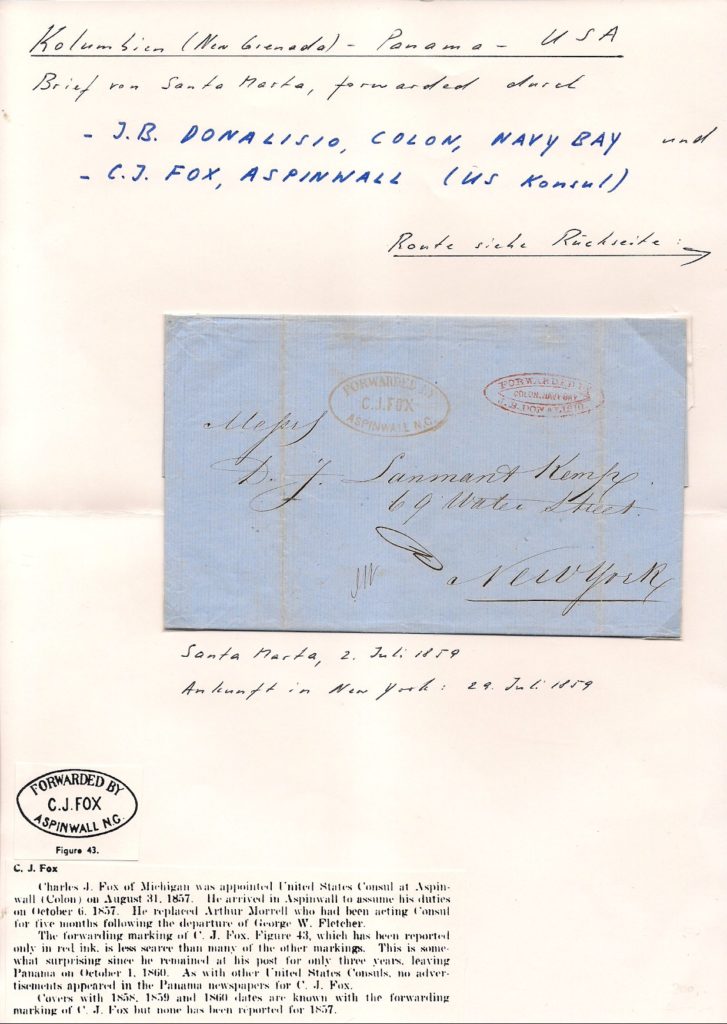 Kolumbien (New Grenada) - Panama - USA
Brief von Santa Marta, forwarded durch
- J.B. DONALISIO, COLON, NAVY BAY und
- C.J. FOX, ASPINWALL (US Konsul)
Route siehe Rückseite:
FORWARDED BY
C.J. FOX
ASPINWALL N.C.
FORWARDED BY
COLON, NAVY BAY
J. B. DONALISIO
Messrs
D. J. Lanmant Kemp
69 Water Street.
New York
Santa Marta, 2. Juli 1859
Ankunft in New York: 29. Juli 1859
FORWARDED BY
C.J. FOX
ASPINWALL N.C.
Figure 43.
C. J. Fox
Charles J. Fox of Michigan was appointed United States Consul at Aspin-
wall (Colon) on August 31, 1857. He arrived in Aspinwall to assume his duties
on October 6, 1857. He replaced Arthur Morrell who had been acting Consul
for five months following the departure of George W. Fletcher.
The forwarding marking of C. J. Fox, Figure 43, which has been reported
only in red ink, is less scarce than many of the other markings. This is some-
what surprising since he remained at his post for only three years, leaving
Panama on October 1, 1860. As with other United States Consuls, no adver-
tisements appeared in the Panama newspapers for C. J. Fox.
Covers with 1858, 1859 and 1860 dates are known with the forwarding
marking of C. J. Fox but none has been reported for 1857.